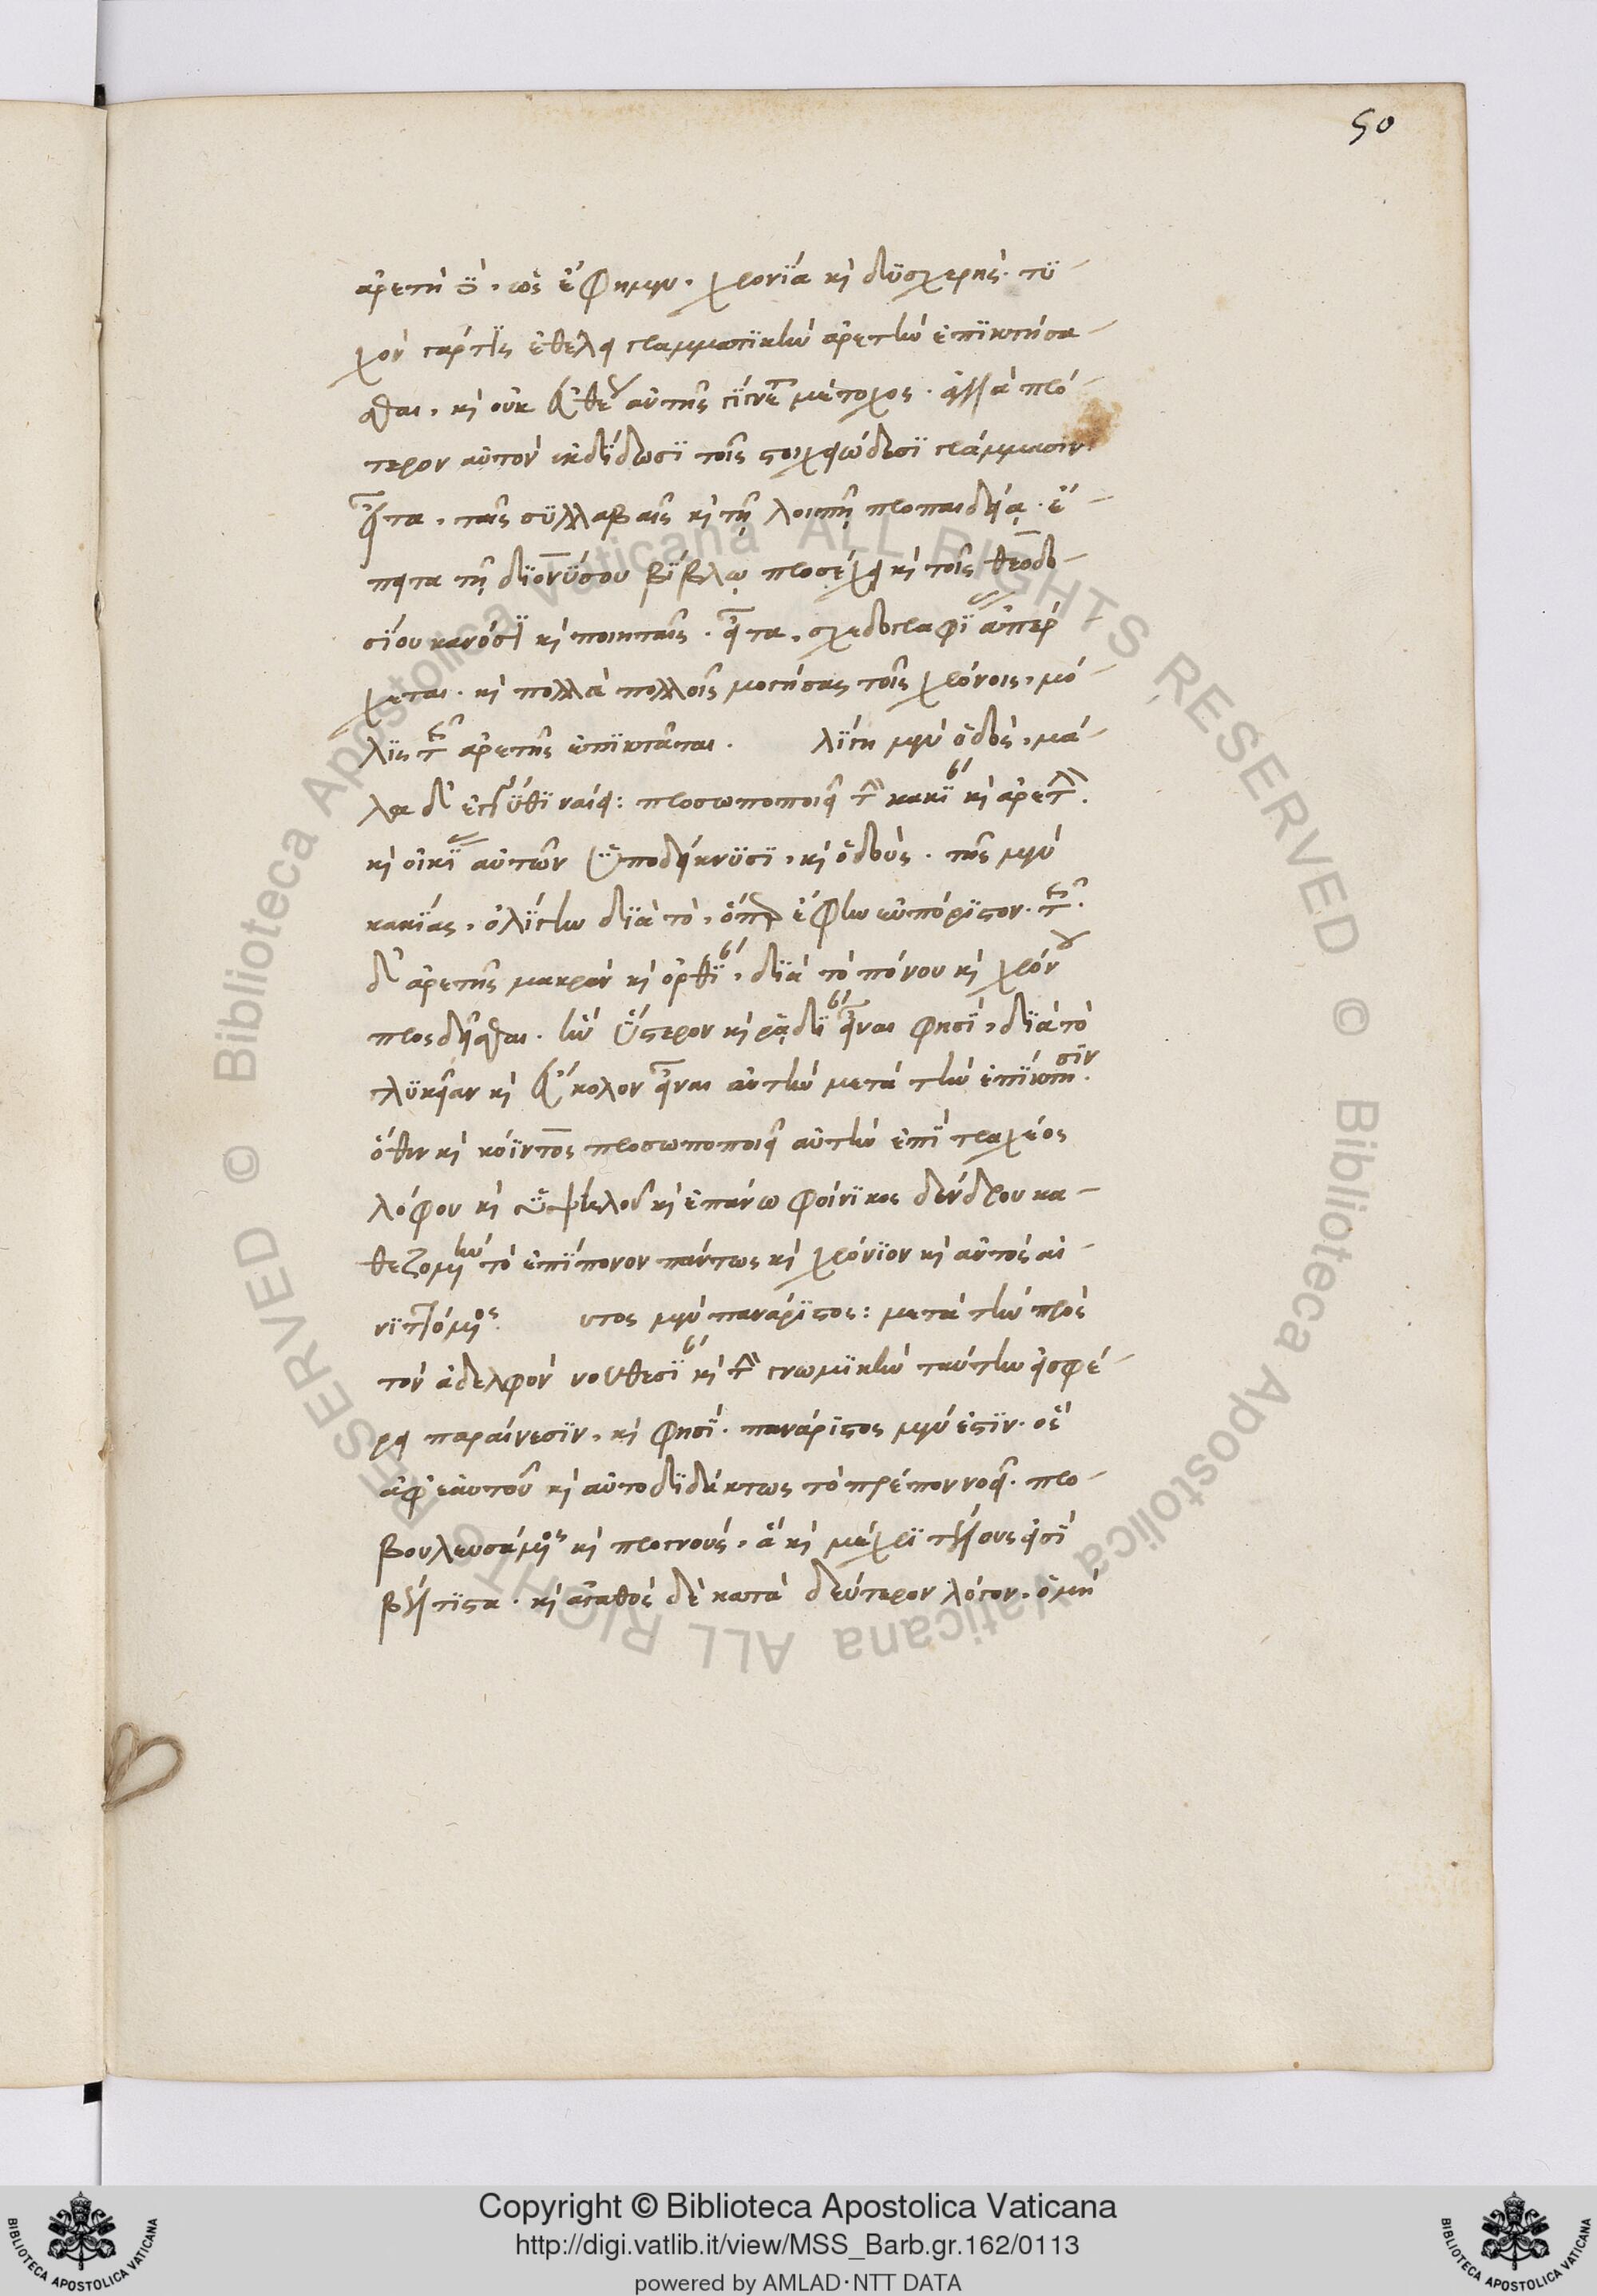 50
ἀρετὴ δὲ, ὡς ἔφημεν, χρονία καὶ δυσχερὴς. τυ-
χὸν γάρ τις ἐθέλει γραμματικὴν ἀρετὴν ἐπικτήσα-
σθαι, καὶ οὐκ εὐθὺς αὐτῆς γίνεται μέτοχος. ἀλλὰ πρό-
τερον αὐτὸν ἐκδίδωσι τοῖς στοιχειώδεσι γράμμασιν
εἶτα, ταῖς συλλαβαῖς καὶ τῇ λοιπῇ προπαιδείᾳ. ἔ-
πειτα τῇ διονύσου βίβλῳ προσέχει καὶ τοῖς θεοδο-
σίου κανόσι καὶ ποιηταῖς. εἶτα, σχεδογραφίας ἀπέρ
χεται. καὶ πολλὰ πολλοῖς μογήσας τοῖς χρόνοις, μό-
λις τῆς ἀρετῆς ἐπικτᾶται. λίγη μὲν ὁδὸς, μά-
λα δ' ἐγγύθι ναίει: προσωποποιεῖ τὴν κακίαν καὶ ἀρετὴν.
καὶ οἰκίας αὐτῶν ὑποδείκνυσι, καὶ ὁδοὺς. τῆς μὲν
κακίας, ὀλίγην διὰ τὸ, ὅπερ ἔφην εὐπόριστον. τῆς
δ' ἀρετῆς μακρὰν καὶ ὀρθίαν, διὰ τὸ πόνου καὶ χρόνου
προσδεῖσθαι. ἣν ὕστερον καὶ ῥᾳδίαν εἶναι φησὶ, διὰ τὸ
γλυκεῖαν καὶ εὔκολον εἶναι αὐτὴν μετὰ τὴν ἐπίκτησιν.
ὅθεν καὶ κόϊντος προσωποποιεῖ αὐτὴν ἐπὶ τραχέος
λόφου καὶ ὑψηλοῦ καὶ ἐπάνω φοίνικος δένδρου κα-
θεζομένην τὸ ἐπίπονον πάντως καὶ χρόνιον καὶ αὐτὸς αἰ-
νιττόμενος. υτος μὲν πανάριστος: μετὰ τὴν πρὸς
τὸν ἀδελφὸν νουθεσίαν καὶ τὴν γνωμικὴν ταύτην εἰσφέ-
ρει παραίνεσιν, καὶ φησὶ. πανάριστος μὲν ἐστὶν. ὃς
ἀφ' ἑαυτοῦ καὶ αὐτοδιδάκτως τὸ πρέπον νοεῖ. προ-
βουλευσάμενος καὶ προγνοὺς, ἃ καὶ μέχρι τέλους εἰσὶ
βέλτιστα. καὶ ἀγαθὸς δὲ κατὰ δεύτερον λόγον, ὁ μὴ
Copyright © Biblioteca Apostolica Vaticana
http://digi.vatlib.it/view/MSS_Barb.gr.162/0113
powered by AMLAD·NTT DATA